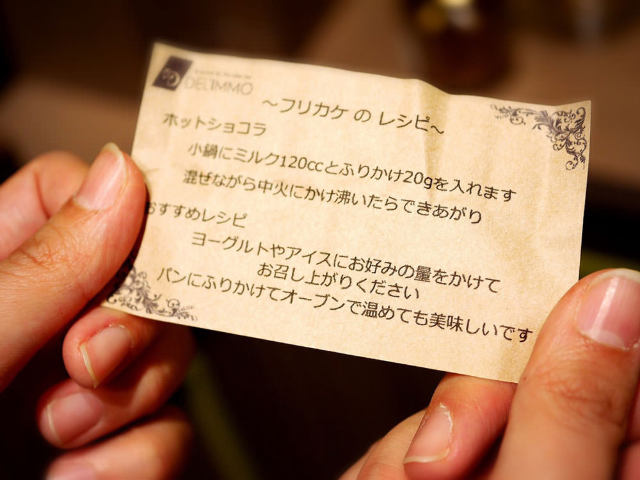 DEL'IMMO
～フリカケ の レシピ～
ホットショコラ
小鍋にミルク120ccとふりかけ20gを入れます
混ぜながら中火にかけ沸いたらできあがり
おすすめレシピ
ヨーグルトやアイスにお好みの量をかけて
お召し上がりください
パンにふりかけてオーブンで温めても美味しいです